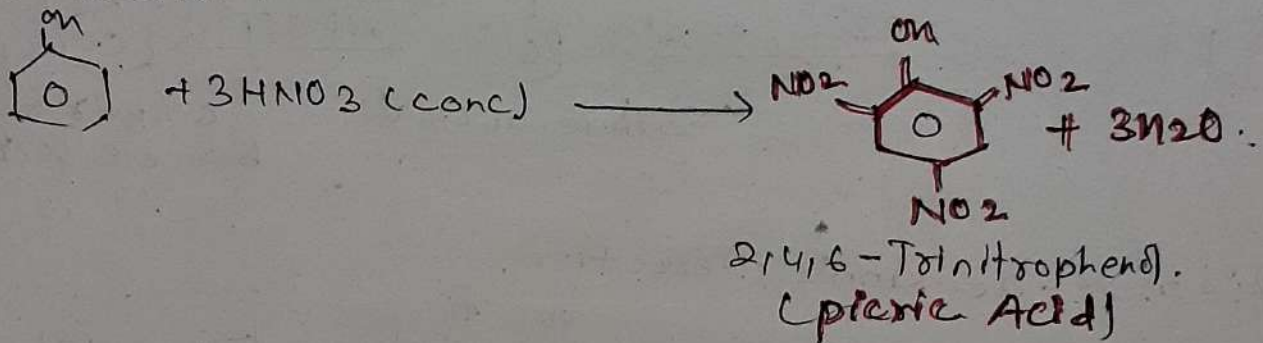 OH OH
+ 3HNO3 (conc) ⟶ NO2 NO2 + 3H2O.
NO2
2,4,6-Trinitrophenol.
(picric Acid)